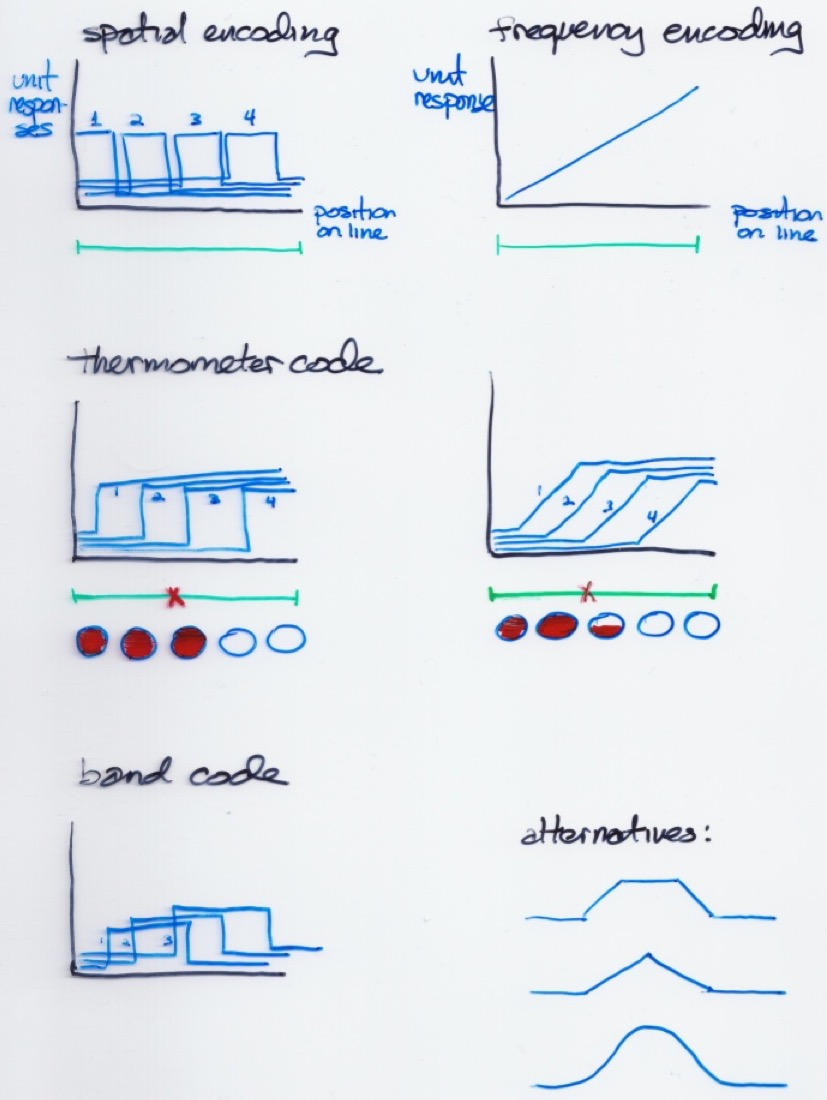 spatial encoding
unit
respon-
ses
1 2 3 4
position
on line
frequency encoding
unit
response
position
on line
thermometer code
1 2 3 4
1 2 3 4
x
x
band code
1 2 3
alternatives: